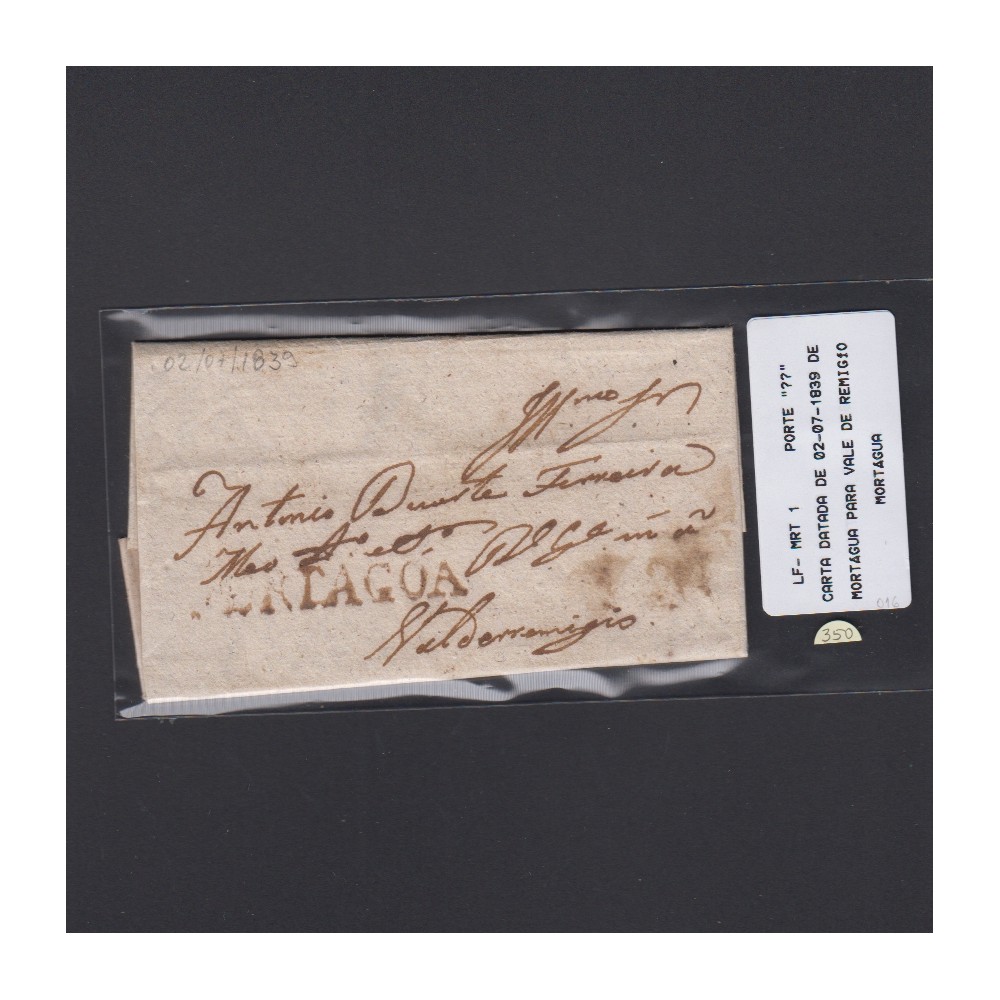 02/07/1839
Illmo Sr
Antonio Duarte Ferreira
RTAGOA
Valderremigio.
LF- MRT 1 PORTE "??"
CARTA DATADA DE 02-07-1839 DE
MORTÁGUA PARA VALE DE REMIGIO
MORTÁGUA
016
350